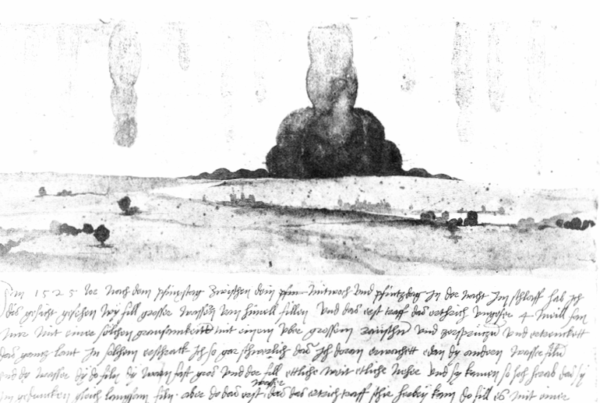 Im 1525 Jor nach dem pfinxstag zwischen dem Mitwoch und pfintzdag in der nacht im schlaff hab ich
dis gesicht gesehen wy fill grosser wassern vom himell fillen Und das erst traff das erthrich ungefer 4 meill fan
mir mit einer solchen grausamkeitt mit einem uber grossem raüschn und zersprützn und ertrenckett
das gantz lant In solchem erschrack ich so gar schwerlich das ich doran erwachett edan dy andern wasser filn
Und dy wasser dy do filn dy warn fast gros und der fill ettliche weit etliche neher und sy kamen so hoch herab das sy
im gedancken gleich langsam filn. aber do das erst wasser das das ertrich traff schir herbey kam do fill es mit einer